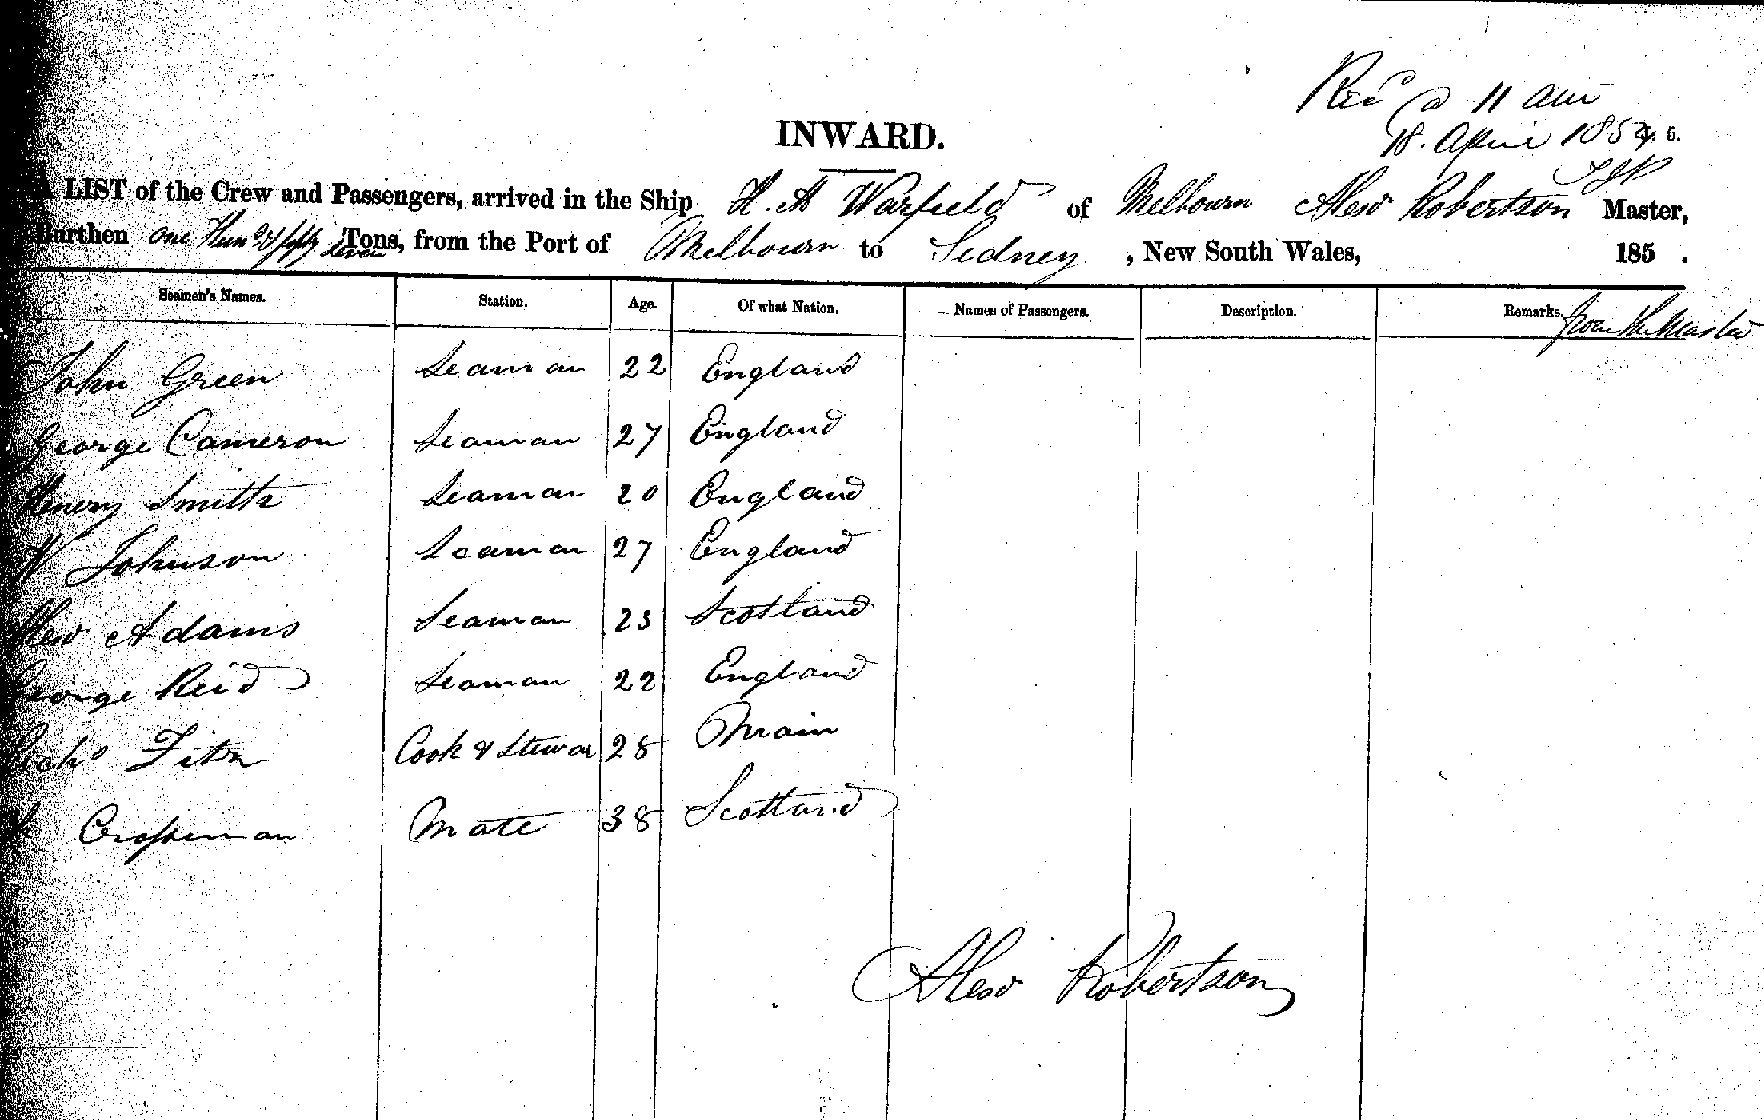 Rec'd @ 11 am
18. April 1854
INWARD.
A LIST of the Crew and Passengers, arrived in the Ship H. A Warfield of Melbourn Alexr Robertson Master,
Burthen one Hund fifty seven Tons, from the Port of Melbourn to Sedney, New South Wales, 185 .
Seamen's Names. Station. Age. Of what Nation. Names of Passengers. Description. Remarks. from the Master
John Green Seaman 22 England
George Cameron Seaman 27 England
Henery Smith Seaman 20 England
W Johnson Seaman 27 England
Alexr Adams Seaman 23 Scotland
George Reid Seaman 22 England
Richd Cook & Stewar 28 Main
Mate 38 Scotland
Alexr Robertson